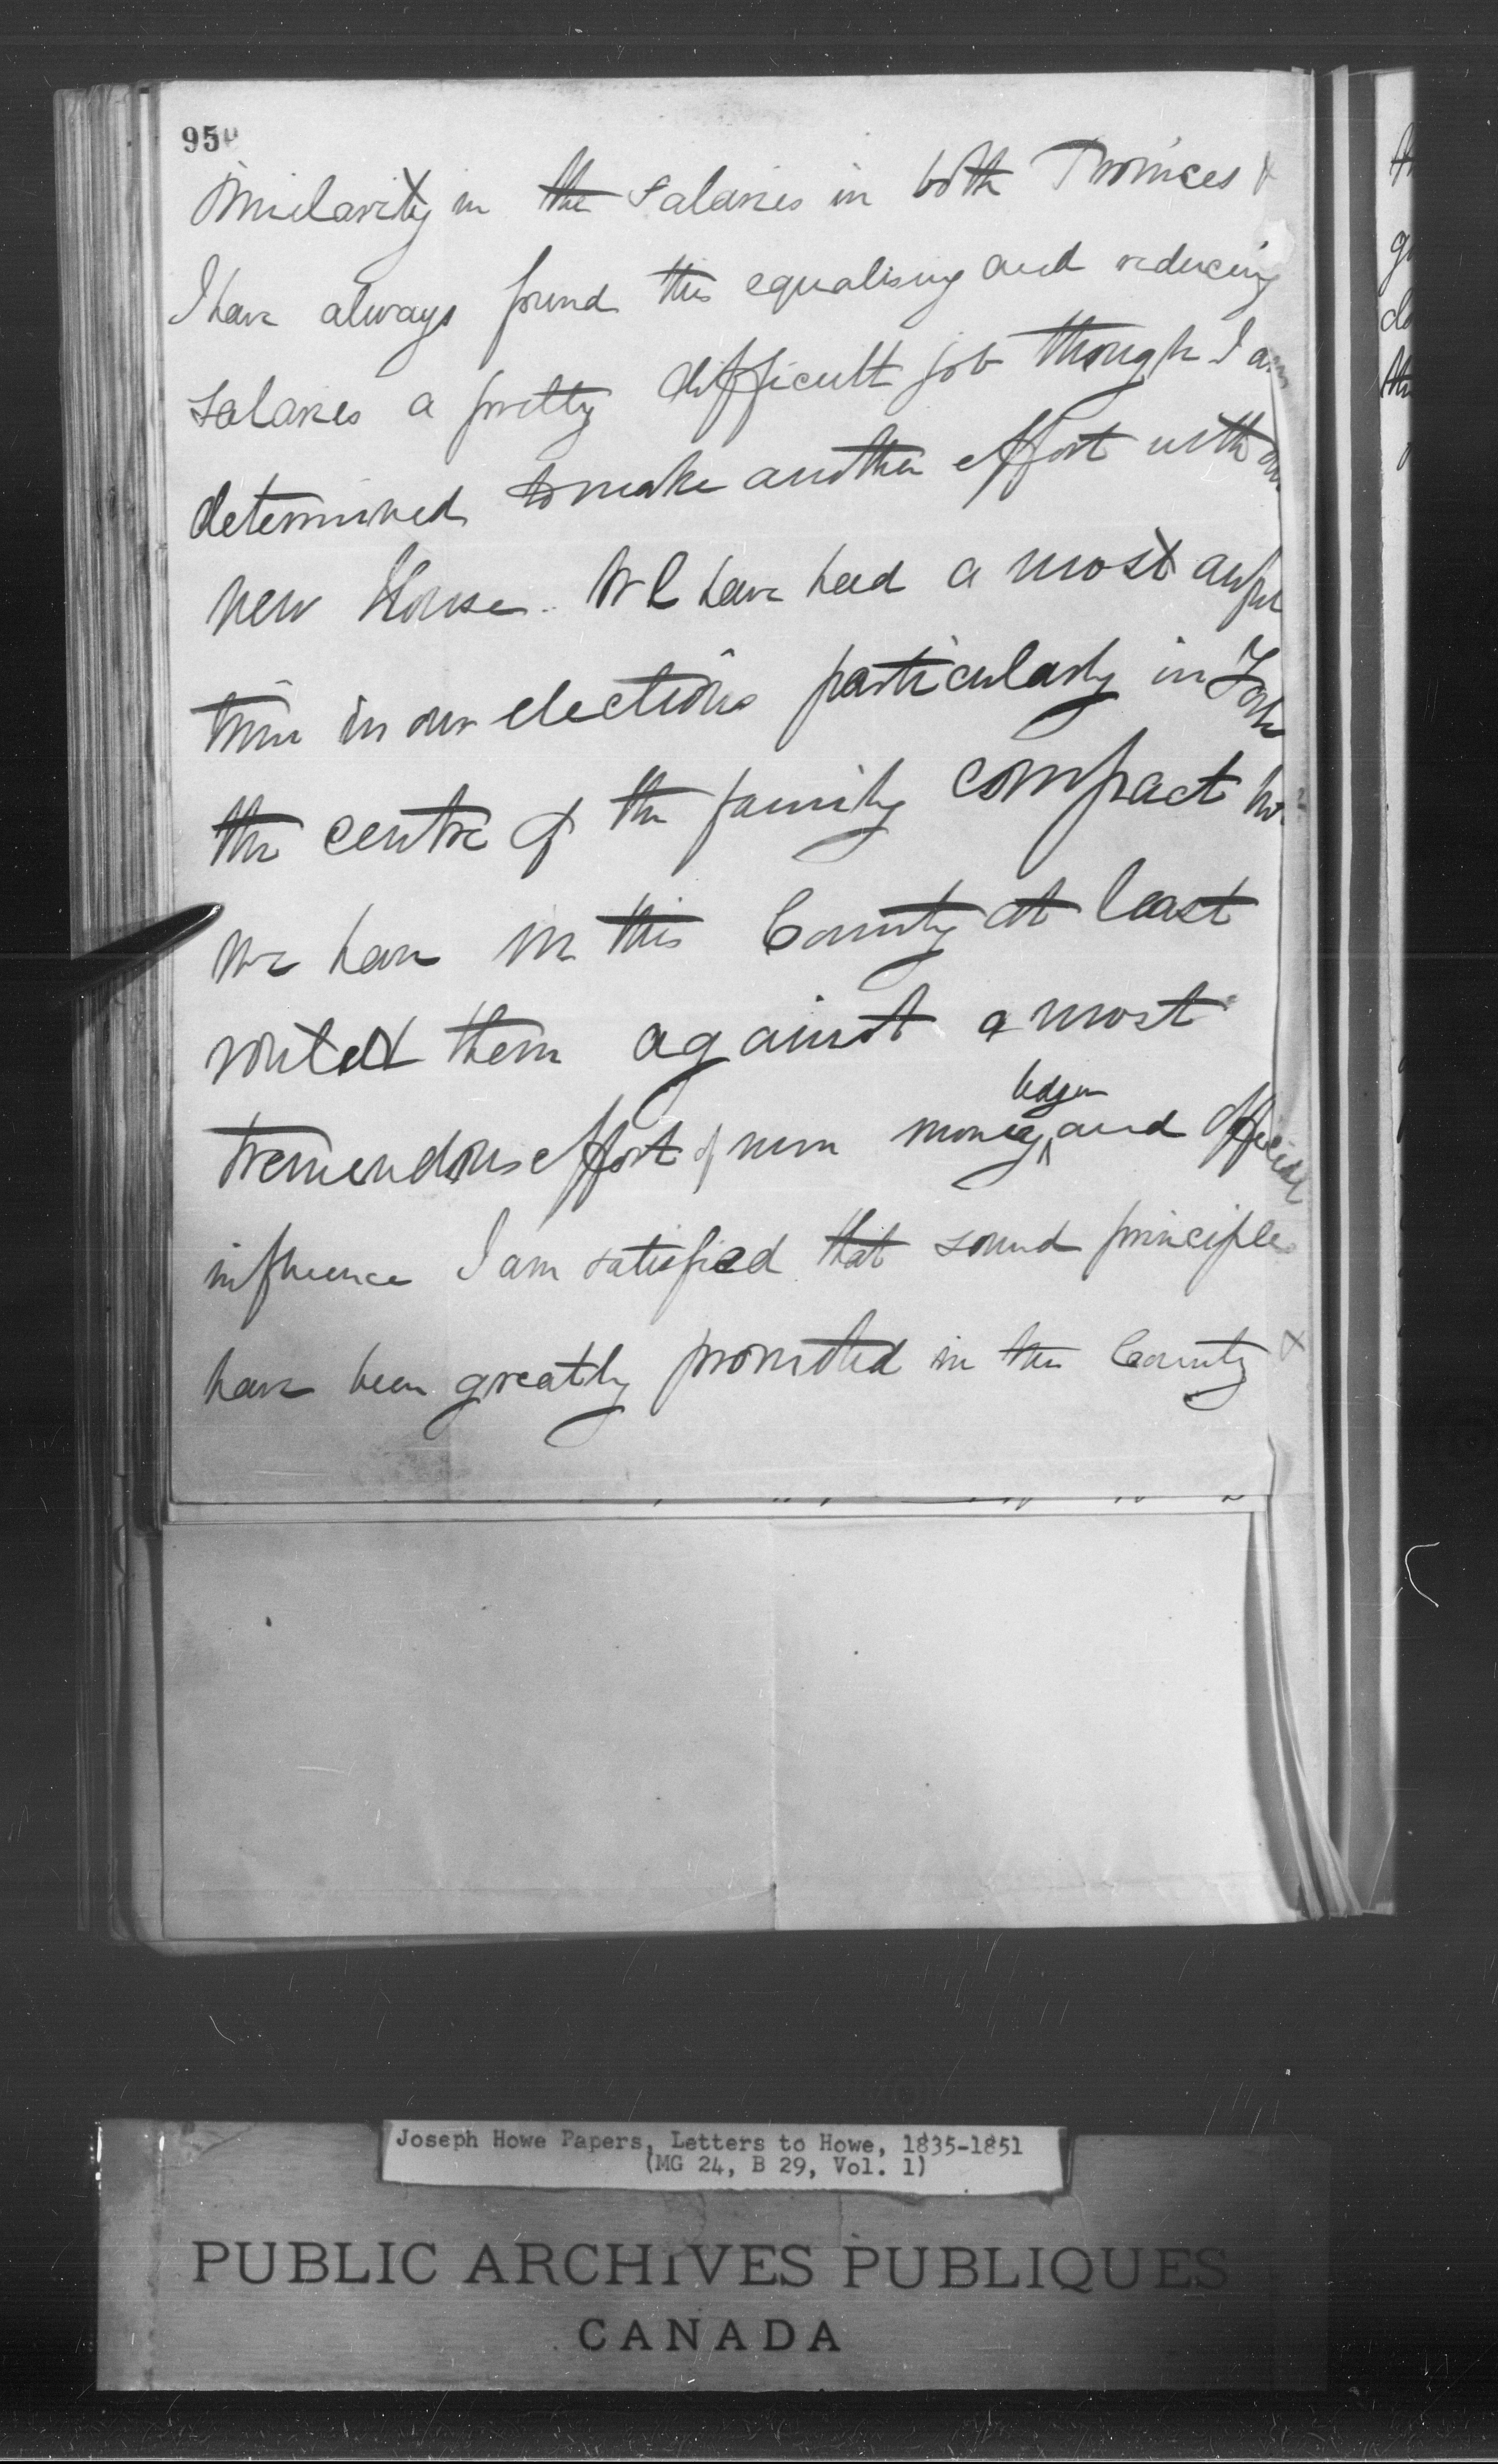 950
similarity in the Salaries in both Provinces &
I have always found this equalising and reducing
salaries a pretty difficult job though I am
determined to make another effort with our
new House. We have had a most awful
time in our elections particularly in York
the centre of the family compact but
we have in this County at least
routed them against a most
tremendous effort of rum money and official
influence I am satisfied that sound principles
have been greatly promoted in the County &
Joseph Howe Papers, Letters to Howe, 1835-1851
(MG 24, B 29, Vol. 1)
PUBLIC ARCHIVES PUBLIQUES
CANADA